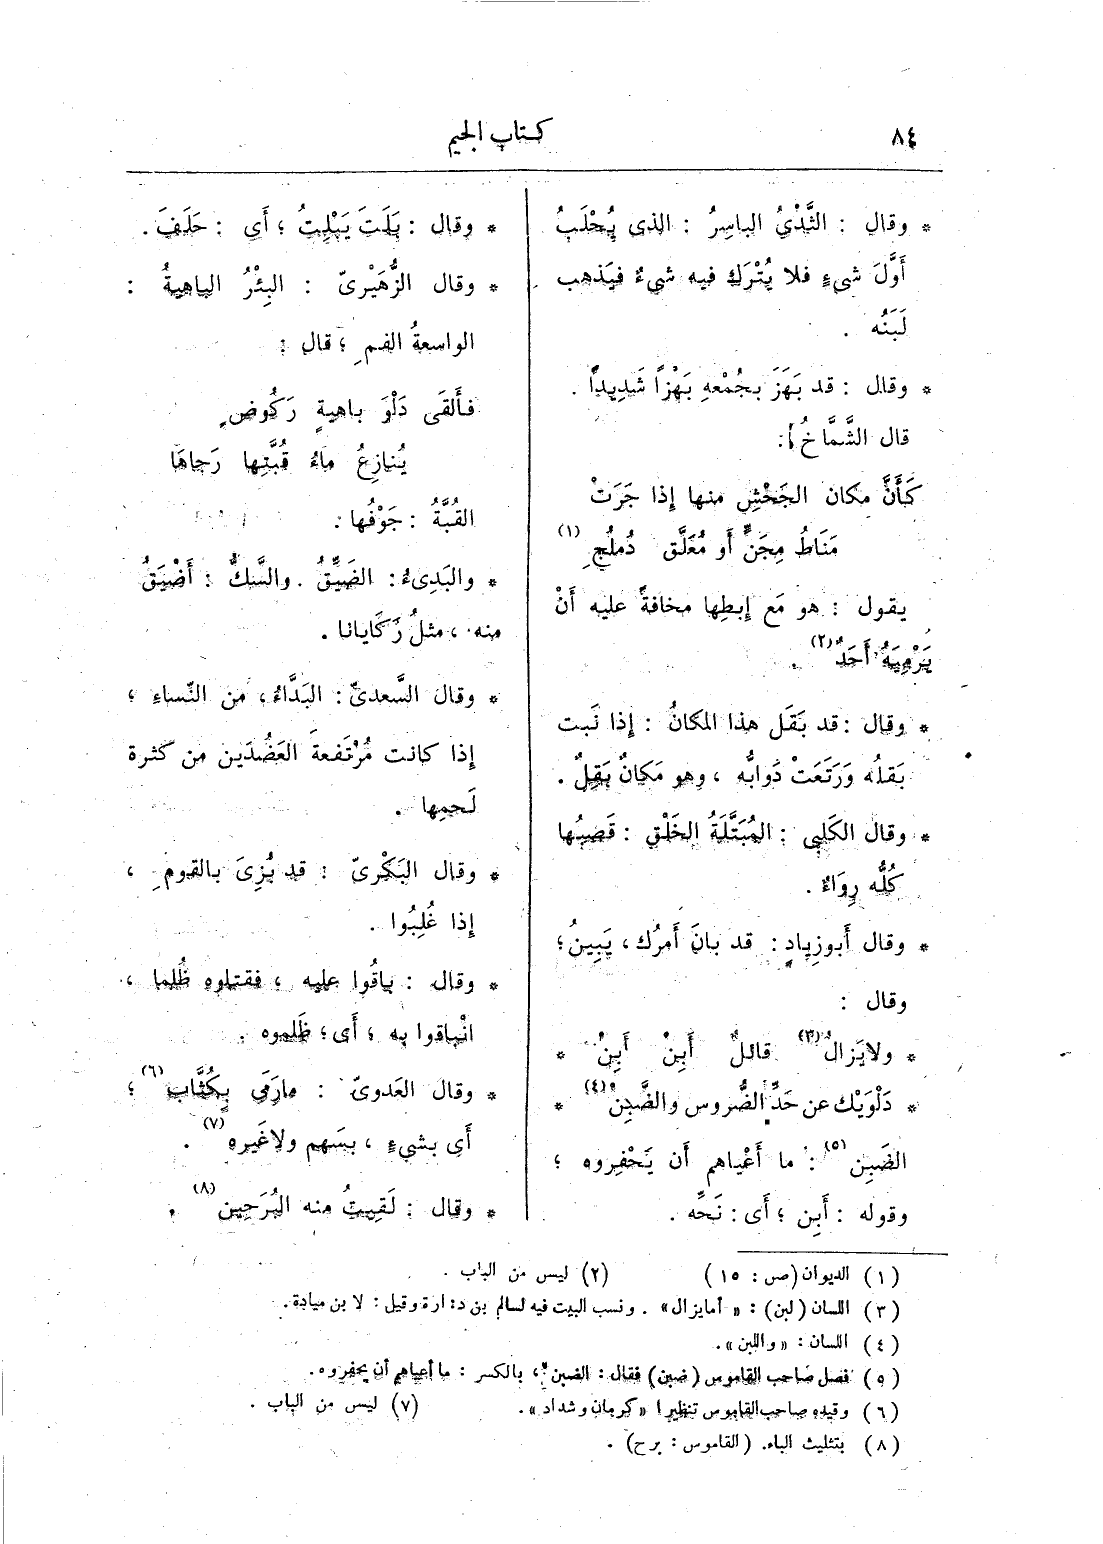 ٨٤
كتاب الجيم
* وقال : الثَّدْىُ الباسِرُ : الذى يُحْلَبُ
أَوَّلَ شىءٍ فلا يُتْرَك فيه شىءٌ فيَذهب
لَبَنُه .
* وقال : قد بَهَزَ بجُمْعِهِ بَهْزاً شَدِيداً .
قال الشَّمَّاخُ :
كَأَنَّ مكان الجَحْشِ منها إِذا جَرَتْ
مَنَاطُ مِجَنٍّ أَو مُعَلَّق دُملُجِ (١)
يقول : هو مَع إِبطِها مخافةً عليه أَنْ
يَرْمِيَهُ أَحَدٌ (٢) .
* وقال : قد بَقَل هذا المكانُ : إِذا نَبت
بَقلُه وَرَتَعَتْ دَوابُّه ، وهو مَكانٌ بَقِلٌ .
* وقال الكَلبى : المُبَتَّلَةُ الخَلْقِ : قَصَبُها
كُلُّه رِوَاءٌ .
* وقال أَبوزِيادٍ : قد بانَ أَمرُك ، يَبِينُ ؛
وقال :
* ولايَزالُ (٣) قائلٌ أَبِنْ أَبِنْ *
* دَلْوَيْك عن حَدِّ الضُّروس والضَّبِنْ (٤) *
الضَبِن (٥) : ما أَعْياهم أَن يَحْفِروه ؛
وقوله : أَبِن ؛ أَى : نَحِّه .
* وقال : بَلَتَ يَبْلِتُ ؛ أَى : حَلَفَ .
* وقال الزُّهَيْرىّ : البِئْرُ الباهيةُ :
الواسعةُ الفم ؛ قال :
فأَلقَى دَلْوَ باهيةٍ رَكُوضٍ
يُنازِعُ ماءُ قُبَّتِها رَجاهَا
القُبَّةُ : جَوْفُها .
* والبَدِىءُ : الضَيِّقُ . والسَّكُّ : أَضْيَقُ
منه ، مثلُ رَكَايانا .
* وقال السَّعدىّ : البَدَّاءُ ، من النِّساءِ ؛
إِذا كانت مُرْتَفعةَ العَضُدَين من كثرة
لَحمِها .
* وقال البَكْرىّ : قد بُزِىَ بالقومِ ،
إِذا غُلِبُوا .
* وقال : باقُوا عليه ، فقتلوه ظُلما ،
انْباقوا به ؛ أَى ؛ ظَلموه .
* وقال العَدوىّ : مارَمَى بِكُثَّاب (٦) ؛
أَى بشىءٍ ، بسَهم ولاغَيره (٧) .
* وقال : لَقِيتُ منه البُرَحِين (٨) .
(١) الديوان (ص : ١٥) (٢) ليس من الباب .
(٣) اللسان (لبن) : « أمايزال » . ونسب البيت فيه لسالم بن دارة وقيل : لابن ميادة .
(٤) اللسان : « واللبن » .
(٥) فصل صاحب القاموس (ضبن) فقال : الضبن ، بالكسر : ما أعياهم أن يحفروه .
(٦) وقيده صاحب القاموس تنظيرا «كرمان وشداد» . (٧) ليس من الباب .
(٨) بتثليث الباء . (القاموس : برح) .